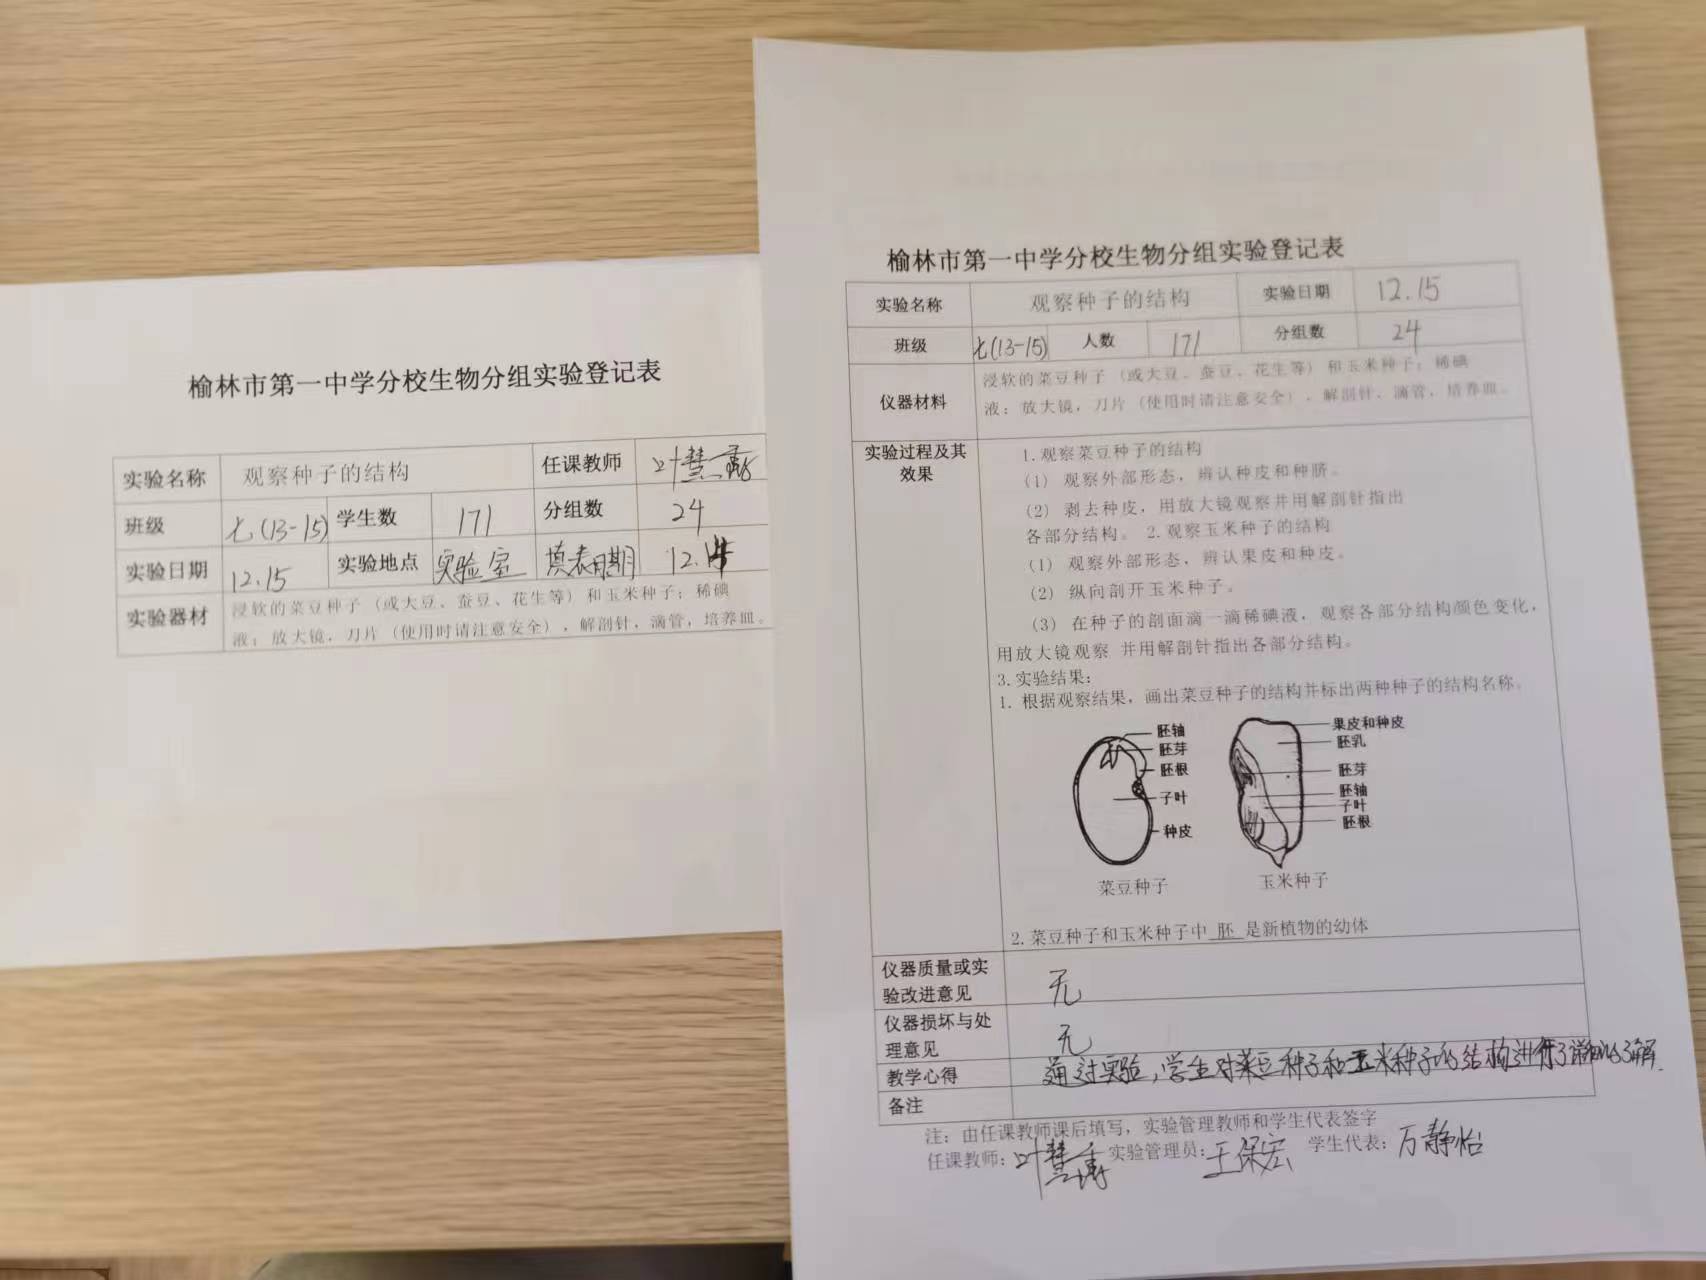 榆林市第一中学分校生物分组实验登记表
实验名称 观察种子的结构 任课教师 叶慧
班级 七(13-15) 学生数 171 分组数 24
实验日期 12.15 实验地点 实验室 填表日期 12.
实验器材 浸软的菜豆种子（或大豆、蚕豆、花生等）和玉米种子；稀碘
液；放大镜，刀片（使用时请注意安全），解剖针，滴管，培养皿。
榆林市第一中学分校生物分组实验登记表
实验名称 观察种子的结构 实验日期 12.15
班级 七(13-15) 人数 171 分组数 24
仪器材料 浸软的菜豆种子（或大豆、蚕豆、花生等）和玉米种子；稀碘
液；放大镜，刀片（使用时请注意安全），解剖针，滴管，培养皿。
实验过程及其
效果
1.观察菜豆种子的结构
（1） 观察外部形态，辨认种皮和种脐。
（2） 剥去种皮，用放大镜观察并用解剖针指出
各部分结构。 2.观察玉米种子的结构
（1） 观察外部形态，辨认果皮和种皮。
（2） 纵向剖开玉米种子。
（3） 在种子的剖面滴一滴稀碘液，观察各部分结构颜色变化，
用放大镜观察 并用解剖针指出各部分结构。
3.实验结果：
1. 根据观察结果，画出菜豆种子的结构并标出两种种子的结构名称。
胚轴
胚芽
胚根
子叶
种皮
菜豆种子
果皮和种皮
胚乳
胚芽
胚轴
子叶
胚根
玉米种子
2.菜豆种子和玉米种子中 胚 是新植物的幼体
仪器质量或实
验改进意见 无
仪器损坏与处
理意见 无
教学心得 通过实验，学生对菜豆种子和玉米种子的结构进行了详细的了解.
备注
注：由任课教师课后填写，实验管理教师和学生代表签字
任课教师：叶慧 实验管理员：王保宏 学生代表：万静怡